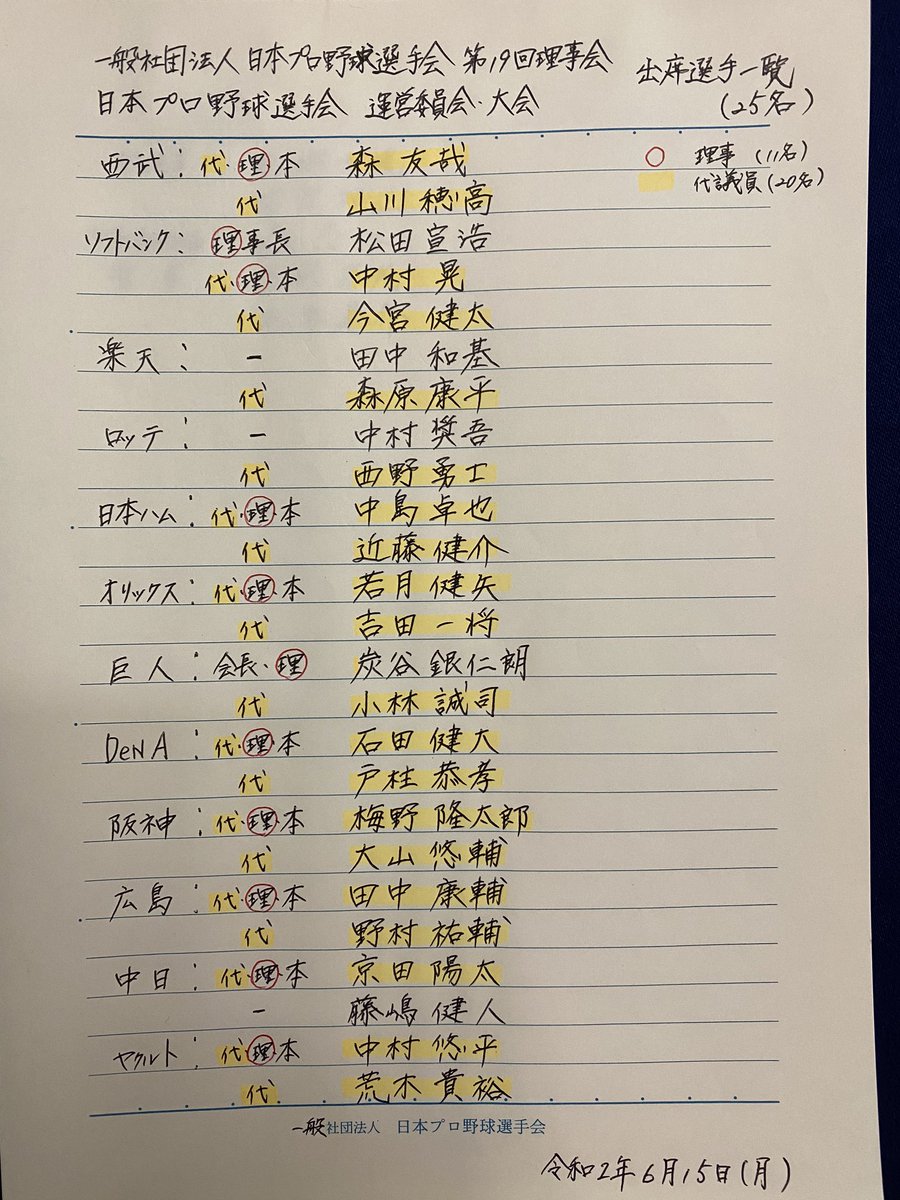 一般社団法人 日本プロ野球選手会 第19回理事会
日本プロ野球選手会 運営委員会・大会
出席選手一覧
(25名)
○ 理事 (11名)
代議員(20名)
西武: 代・理・本 森 友哉
代 山川 穂高
ソフトバンク: 理事長 松田 宣浩
代・理・本 中村 晃
代 今宮 健太
楽天: ー 田中 和基
代 森原 康平
ロッテ: ー 中村 奨吾
代 西野 勇士
日本ハム: 代・理・本 中島 卓也
代 近藤 健介
オリックス: 代・理・本 若月 健矢
代 吉田 一将
巨人: 会長・理 炭谷 銀仁朗
代 小林 誠司
DeNA: 代・理・本 石田 健大
代 戸柱 恭孝
阪神: 代・理・本 梅野 隆太郎
代 大山 悠輔
広島: 代・理・本 田中 康輔
代 野村 祐輔
中日: 代・理・本 京田 陽太
ー 藤嶋 健人
ヤクルト: 代・理・本 中村 悠平
代 荒木 貴裕
一般社団法人 日本プロ野球選手会
令和2年6月15日(月)